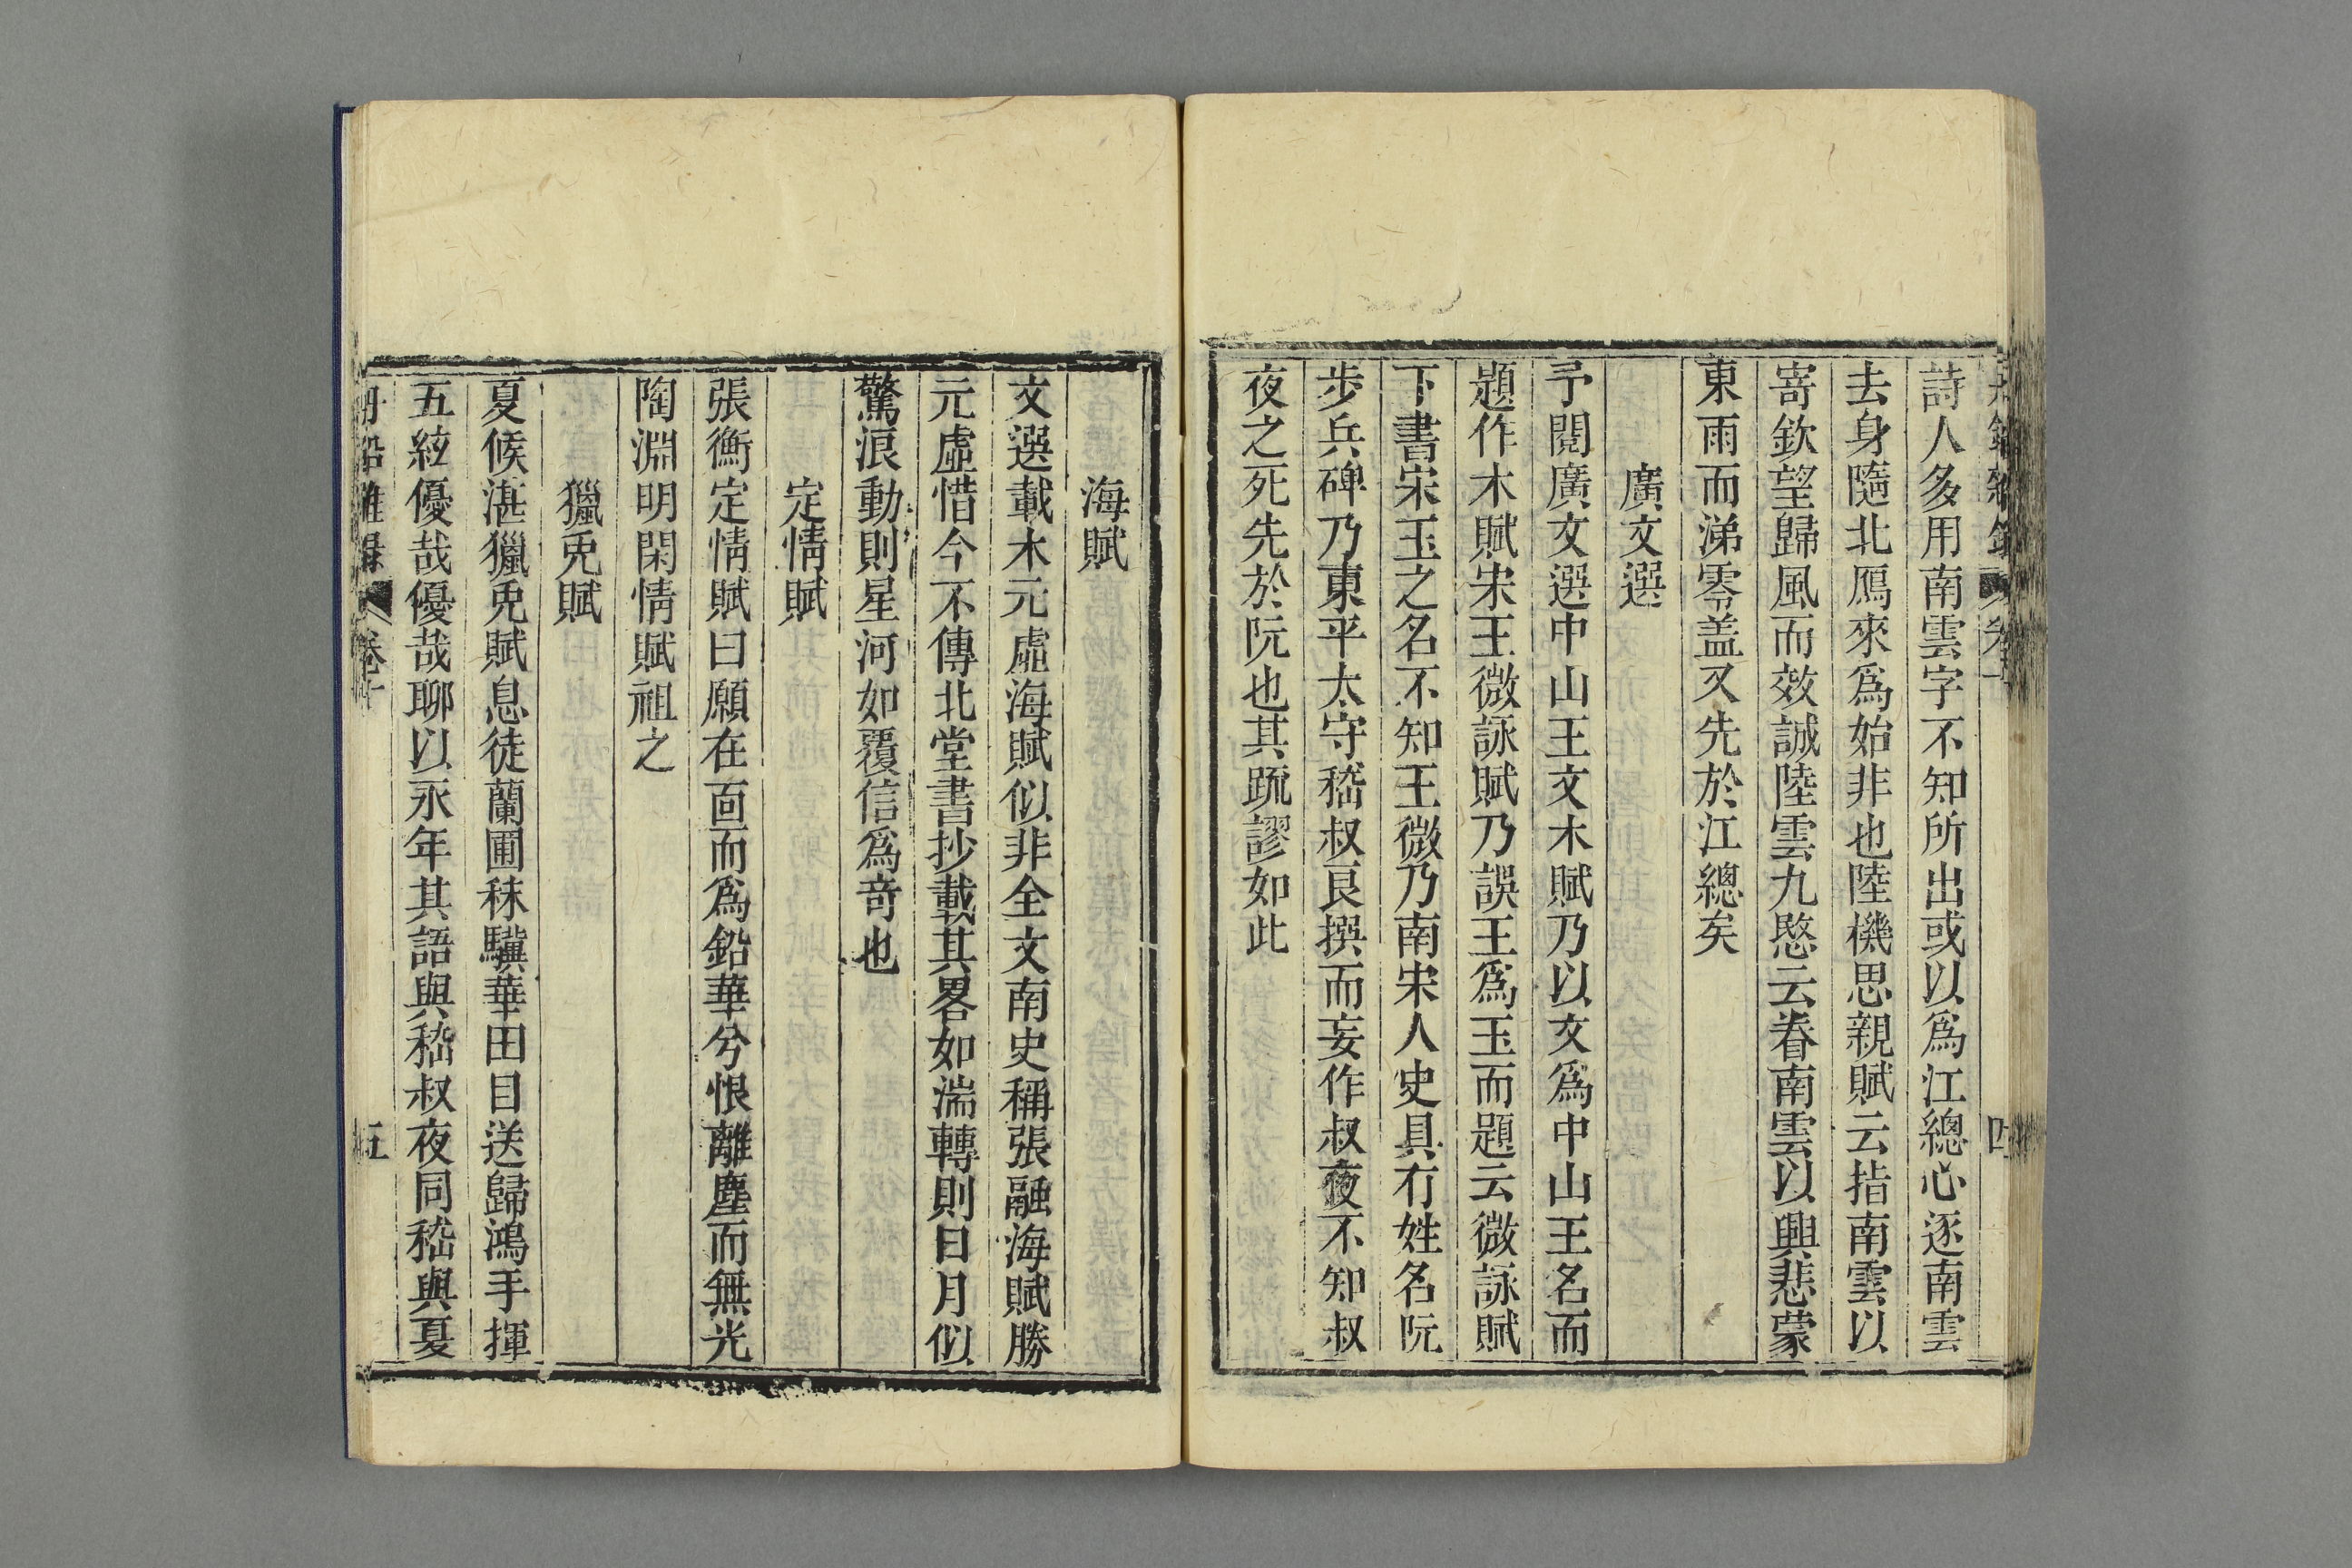 詩人多用南雲字不知所出或以爲江總心逐南雲
去身隨北鴈來爲始非也陸機思親賦云指南雲以
寄欽望歸風而效誠陸雲九愍云眷南雲以興悲蒙
東雨而涕零盖又先於江總矣
廣文選
予閱廣文選中山王文木賦乃以文爲中山王名而
題作木賦宋王微詠賦乃誤王爲玉而題云微詠賦
下書宋玉之名不知王微乃南宋人史具有姓名阮
步兵碑乃東平太守嵇叔良撰而妄作叔夜不知叔
夜之死先於阮也其疏謬如此
海賦
文選載木元虛海賦似非全文南史稱張融海賦勝
元虛惜今不傳北堂書抄載其畧如湍轉則日月似
驚浪動則星河如覆信爲竒也
定情賦
張衡定情賦曰願在靣而爲鉛華兮恨離塵而無光
陶淵明閑情賦祖之
獵兎賦
夏候湛獵兎賦息徒蘭圃秣驥華田目送歸鴻手揮
五絃優哉優哉聊以永年其語與嵇叔夜同嵇與夏
丹鉛雜錄 卷十 五